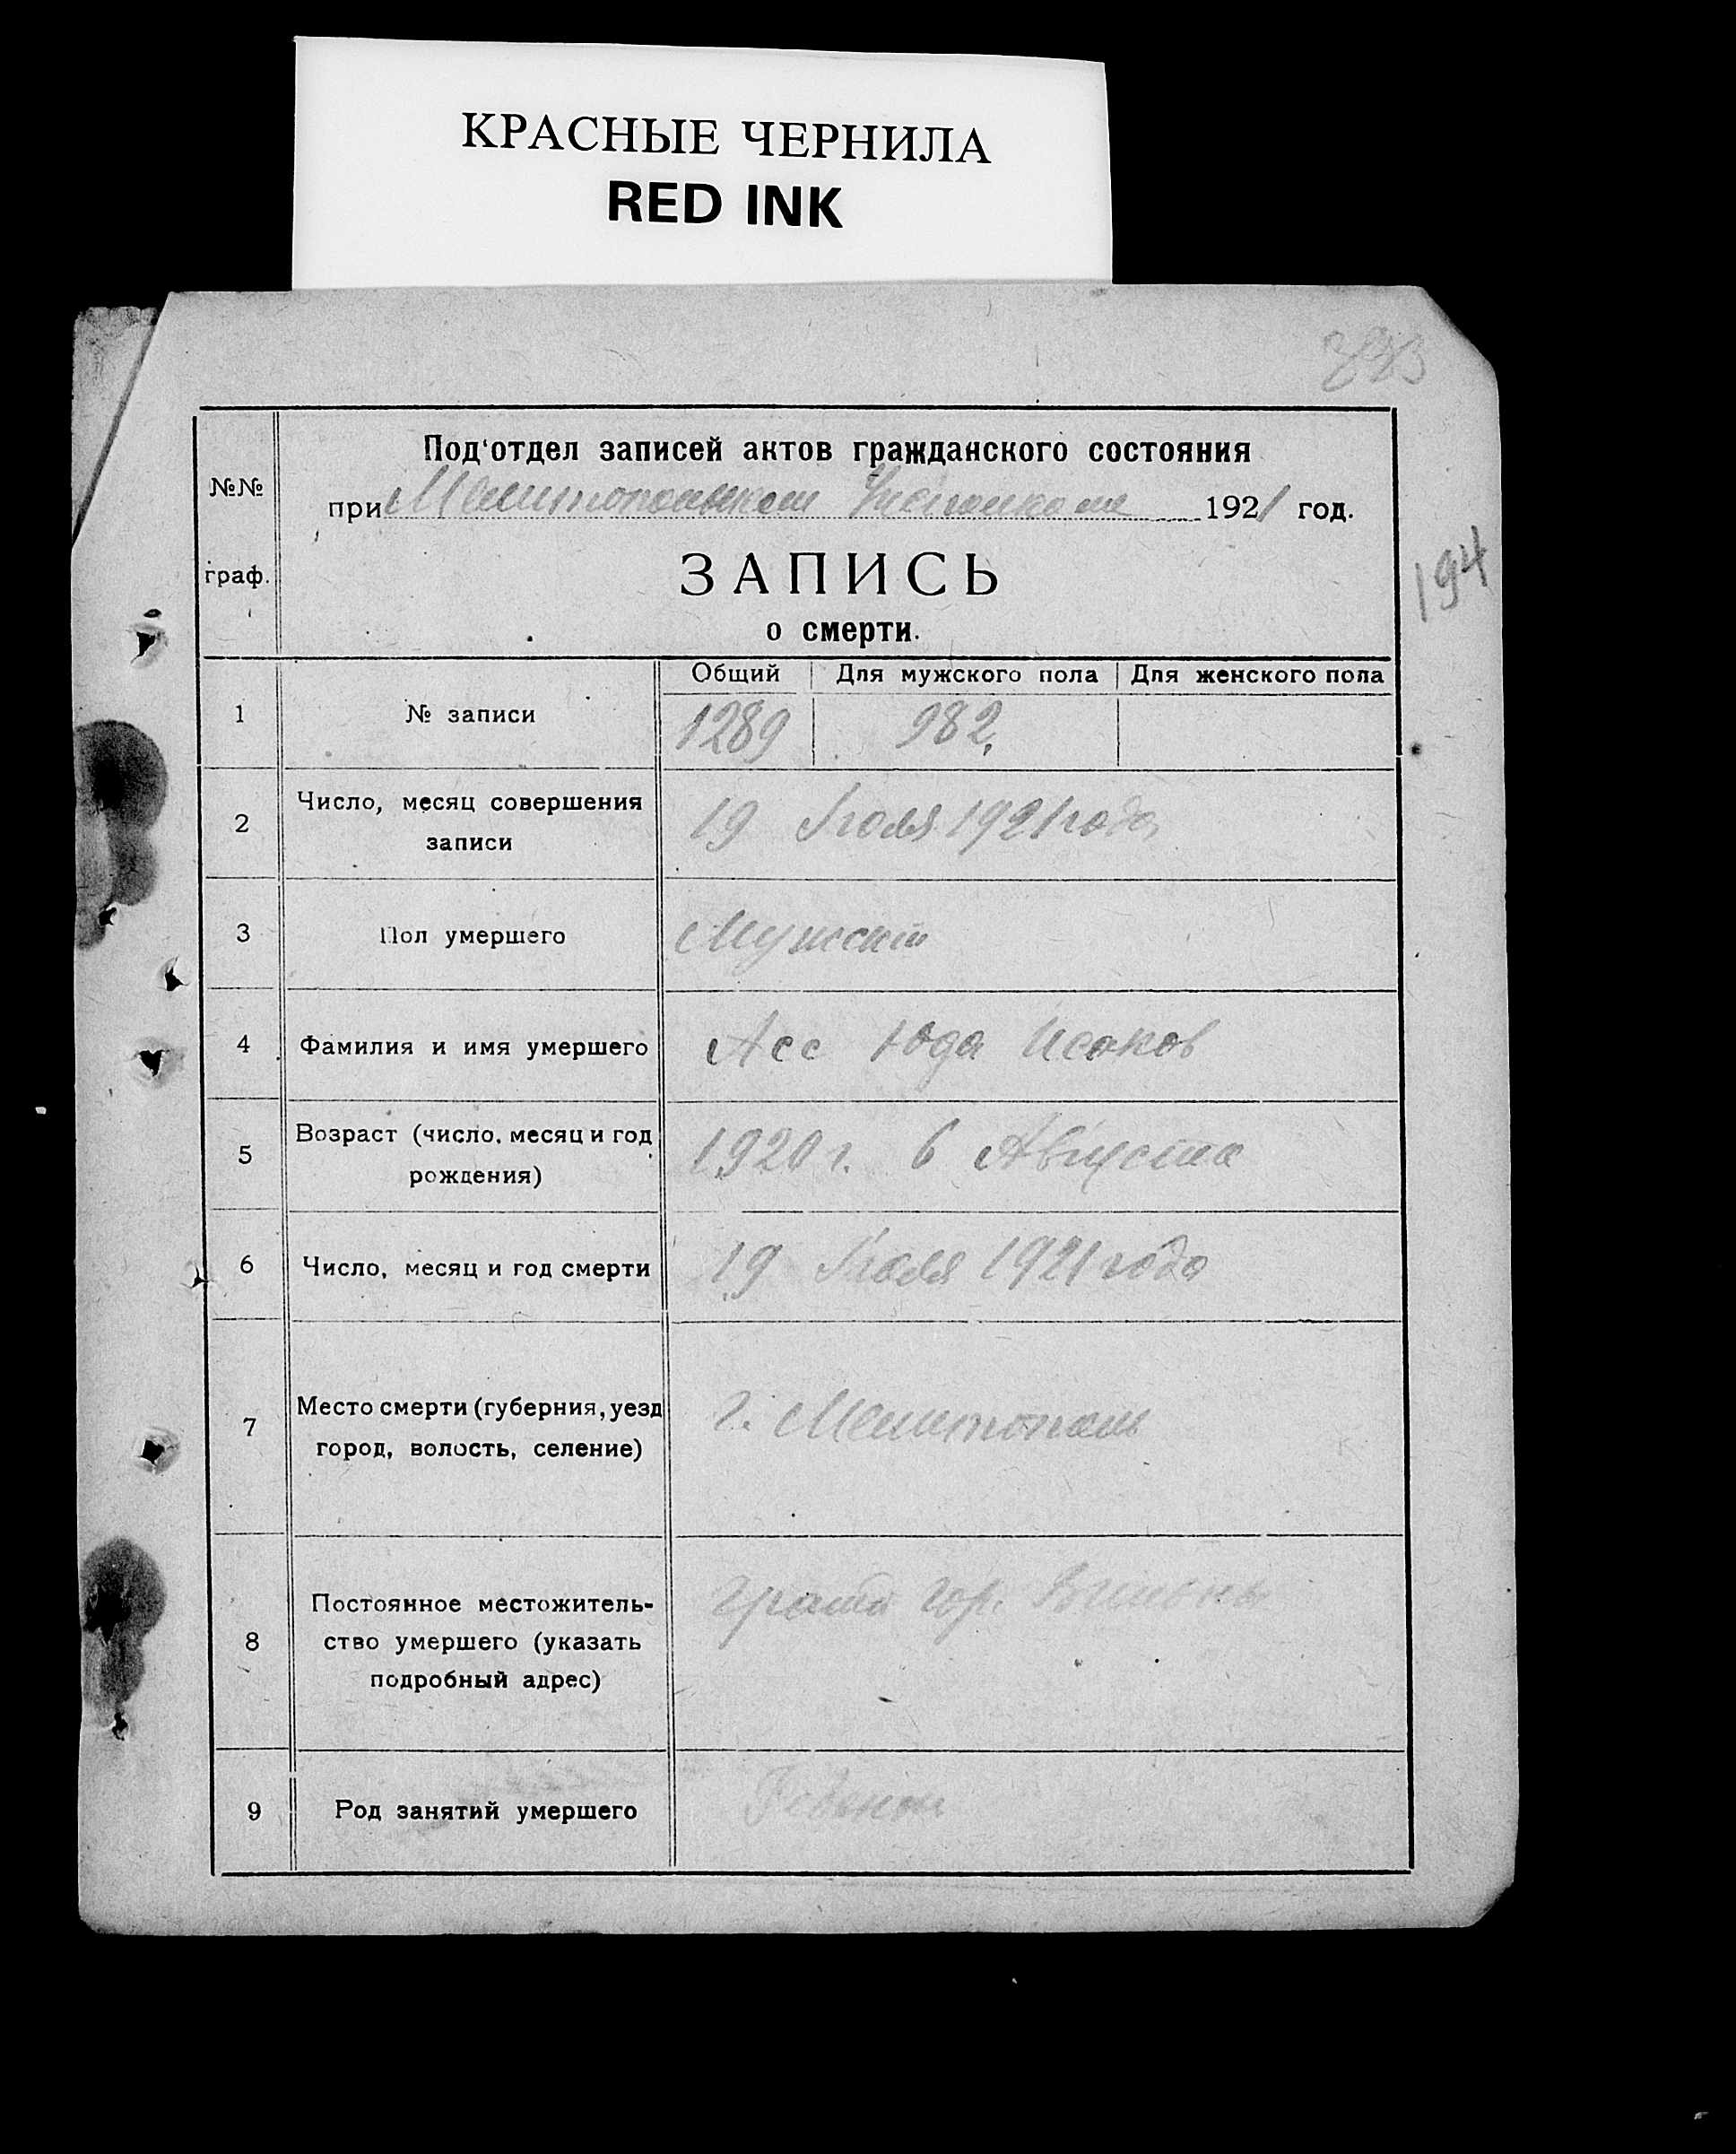 КРАСНЫЕ ЧЕРНИЛА
RED INK
Под'отдел записей актов гражданского состояния
№№
при Мелитопольском 1921 год.
194
граф.
ЗАПИСЬ
о смерти.
Общий Для мужского пола Для женского пола
1 № записи 1289 982
2 Число, месяц совершения
записи
19 Июля 1921 года
3 Пол умершего Мужской
4 Фамилия и имя умершего Асс Юда Исаков
5 Возраст (число, месяц и год
рождения)
1920 г. 6 Августа
6 Число, месяц и год смерти 19 Июля 1921 года
7 Место смерти (губерния, уезд
город, волость, селение)
г. Мелитополь
8 Постоянное местожитель-
ство умершего (указать
подробный адрес)
гор. Вильны
9 Род занятий умершего Ребенок